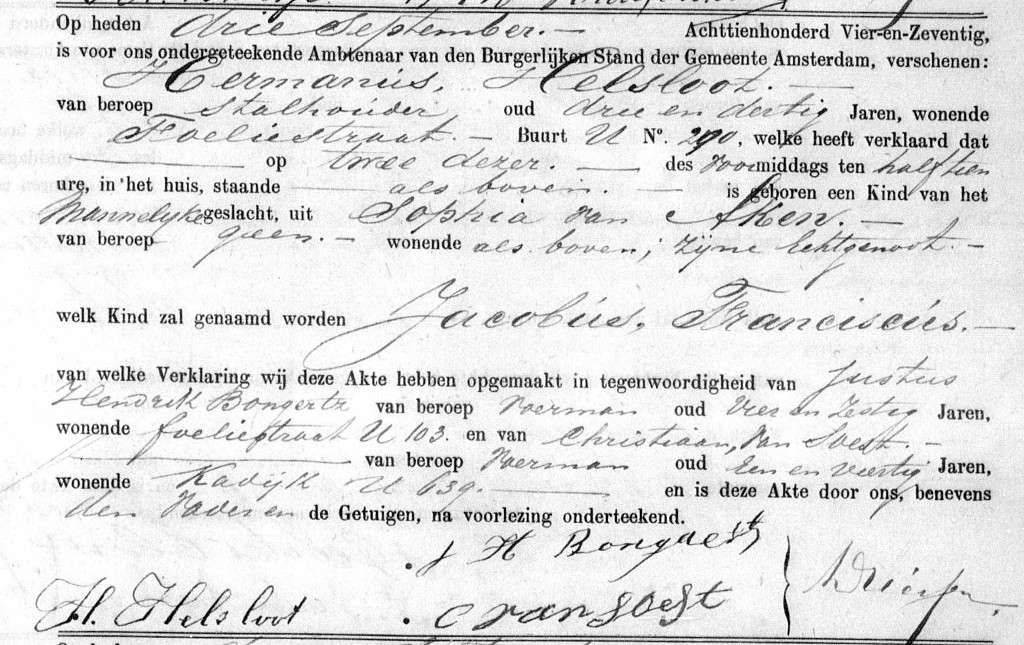 Op heden drie September. — Achttienhonderd Vier-en-Zeventig,
is voor ons ondergeteekende Ambtenaar van den Burgerlijken Stand der Gemeente Amsterdam, verschenen:
Hermanus, Helsloot. —
van beroep Stalhouder oud drie en dertig Jaren, wonende
Foeliestraat. Buurt U Nº. 290, welke heeft verklaard dat
op twee dezer. — des Voormiddags ten half tien
ure, in het huis, staande als boven — is geboren een Kind van het
Mannelijke geslacht, uit Sophia van Aken. —
van beroep geen — wonende als boven, zijne Echtgenoot. —
welk Kind zal genaamd worden Jacobus, Franciscus. —
van welke Verklaring wij deze Akte hebben opgemaakt in tegenwoordigheid van Justus
Hendrik Bongertz van beroep Voerman oud Vier en Zestig Jaren,
wonende foeliestraat U 103. en van Christiaan, van Soest. —
— van beroep Voerman oud Een en veertig Jaren,
wonende Kadijk U 639. — en is deze Akte door ons, benevens
den Vader en de Getuigen, na voorlezing onderteekend.
J H
H. Helsloot C van Soest